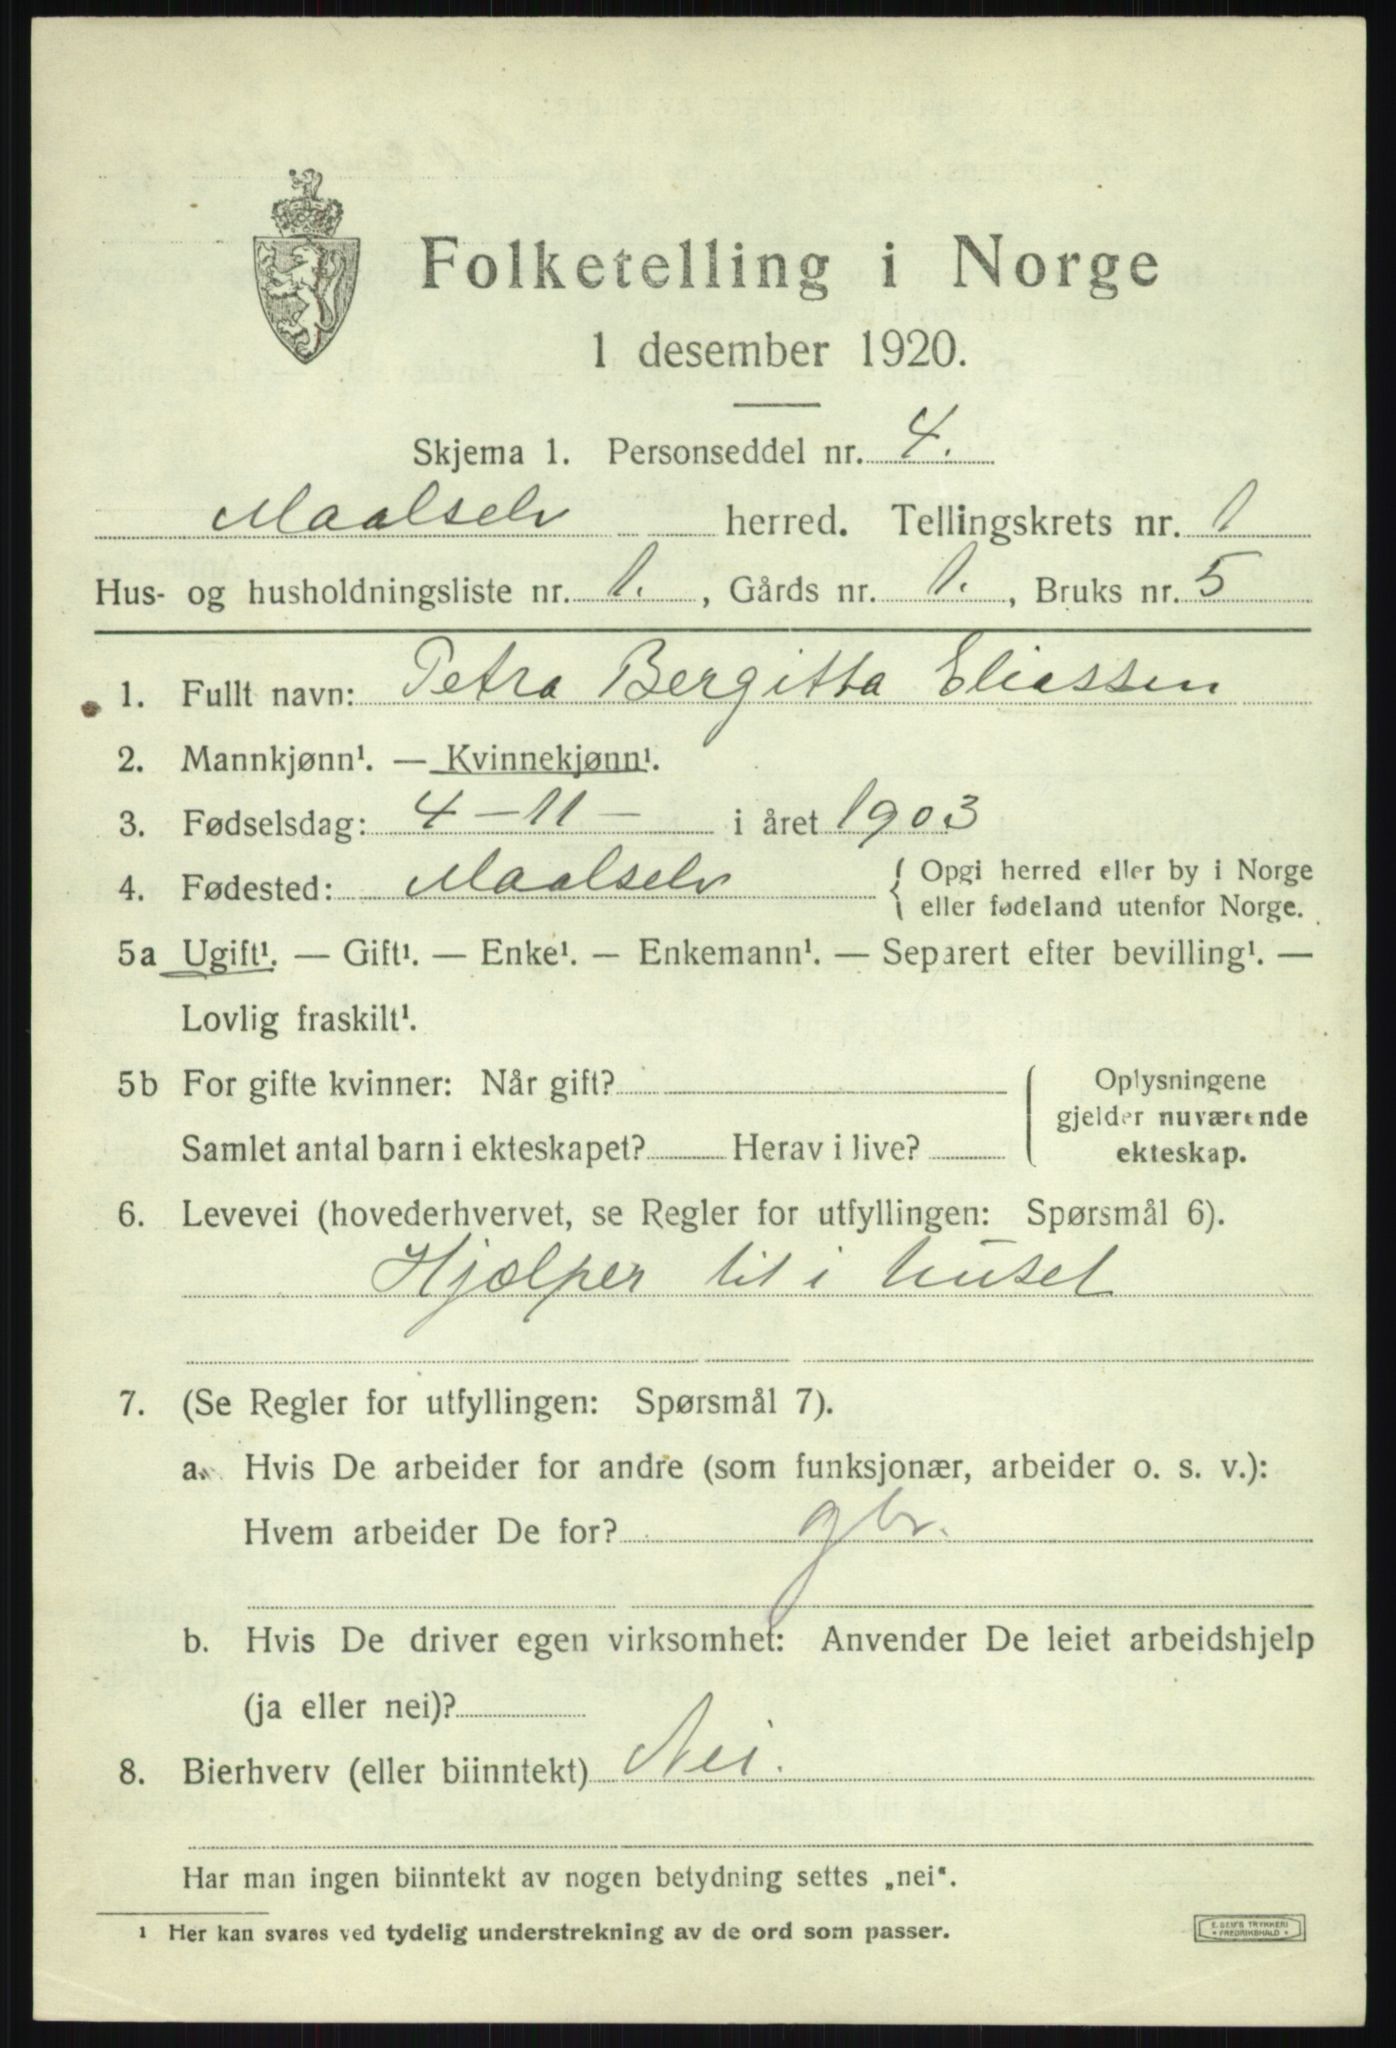 Folketelling i Norge
1 desember 1920.
Skjema 1. Personseddel nr. 4.
Maalselv herred. Tellingskrets nr. 1
Hus- og husholdningsliste nr. 1., Gårds nr. 1., Bruks nr. 5
1. Fullt navn: Petra Bergitta Eliassen
2. Mannkjønn¹. — Kvinnekjønn¹.
3. Fødselsdag: 4 - 11 - i året 1903
4. Fødested: Maalselv { Opgi herred eller by i Norge
eller fødeland utenfor Norge.
5a Ugift¹. — Gift¹. — Enke¹. — Enkemann¹. — Separert efter bevilling¹. —
Lovlig fraskilt¹.
5b For gifte kvinner: Når gift?
Samlet antal barn i ekteskapet? Herav i live?
Oplysningene
gjelder nuværende
ekteskap.
6. Levevei (hovederhvervet, se Regler for utfyllingen: Spørsmål 6).
Hjælper til i huset
7. (Se Regler for utfyllingen: Spørsmål 7).
a. Hvis De arbeider for andre (som funksjonær, arbeider o. s. v.):
Hvem arbeider De for? gbr.
b. Hvis De driver egen virksomhet: Anvender De leiet arbeidshjelp
(ja eller nei)?
8. Bierhverv (eller biinntekt) Nei.
Har man ingen biinntekt av nogen betydning settes „nei“.
¹ Her kan svares ved tydelig understrekning av de ord som passer.
E. SEM'S TRYKKERI
* FREDRIKSHALD *